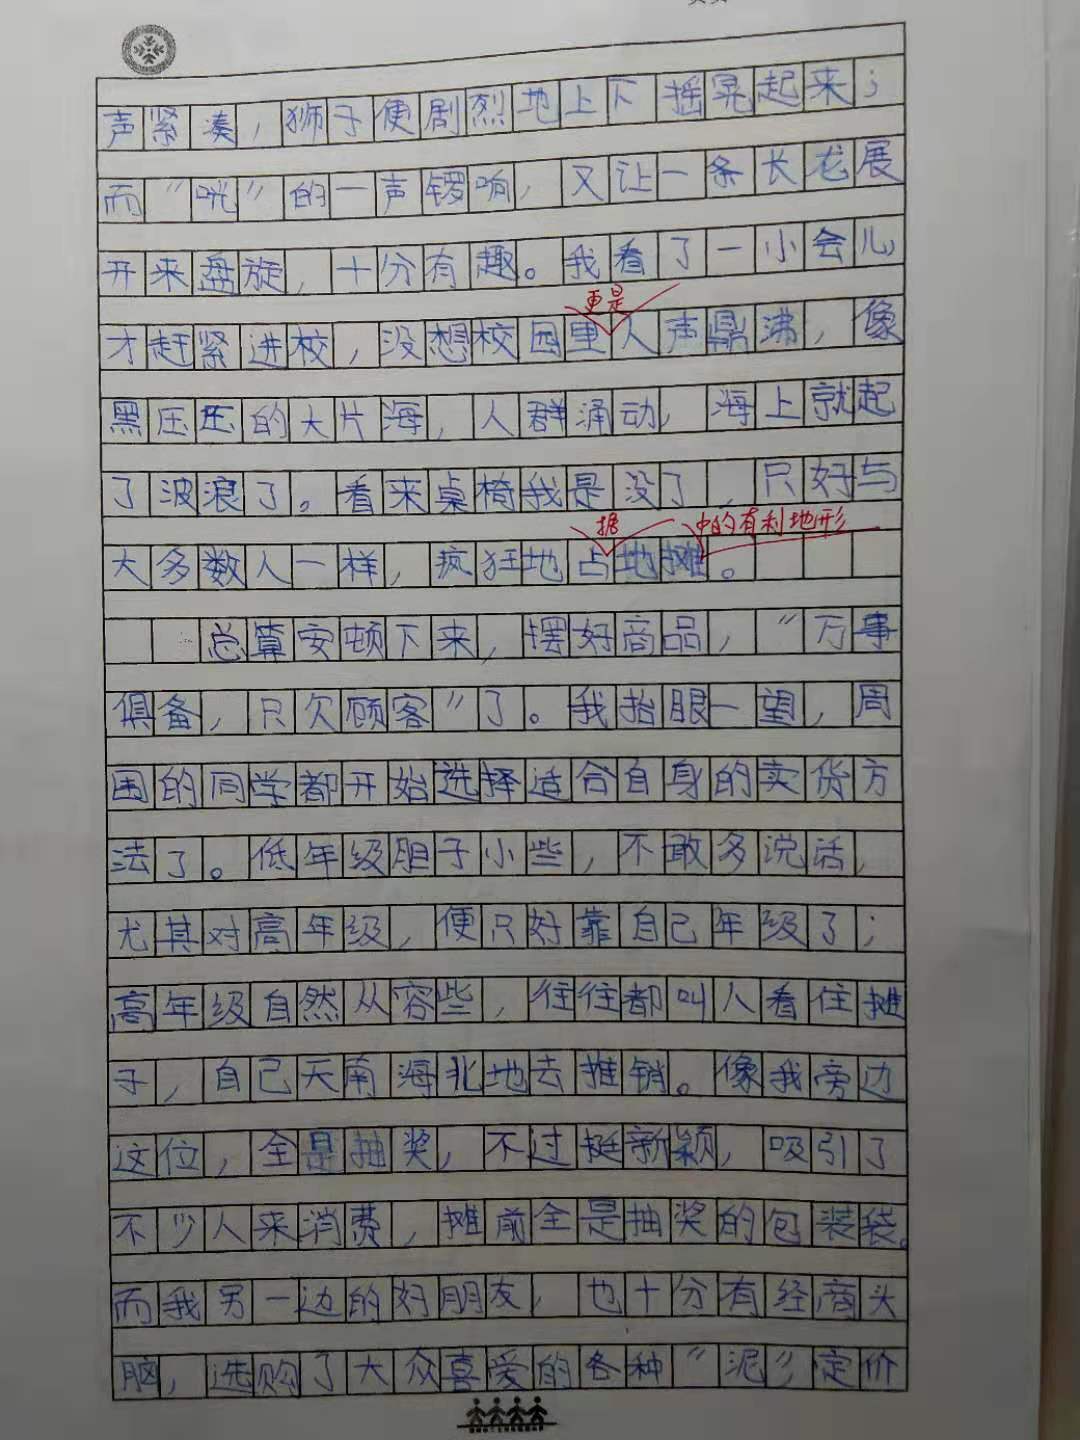 声紧凑，狮子便剧烈地上下摇晃起来；
而“咣”的一声锣响，又让一条长龙展
开来盘旋，十分有趣。我看了一小会儿
更是
才赶紧进校，没想校园里人声鼎沸，像
黑压压的大片海，人群涌动，海上就起
了波浪了。看来桌椅我是没了，只好与
据 中的有利地形
大多数人一样，疯狂地占地摊。
总算安顿下来，摆好商品，“万事
俱备，只欠顾客”了。我抬眼一望，周
围的同学都开始选择适合自身的卖货方
法了。低年级胆子小些，不敢多说话，
尤其对高年级，便只好靠自己年级了；
高年级自然从容些，往往都叫人看住摊
子，自己天南海北地去推销。像我旁边
这位，全是抽奖，不过挺新颖，吸引了
不少人来消费，摊前全是抽奖的包装袋。
而我另一边的好朋友，也十分有经商头
脑，选购了大众喜爱的各种“泥”定价